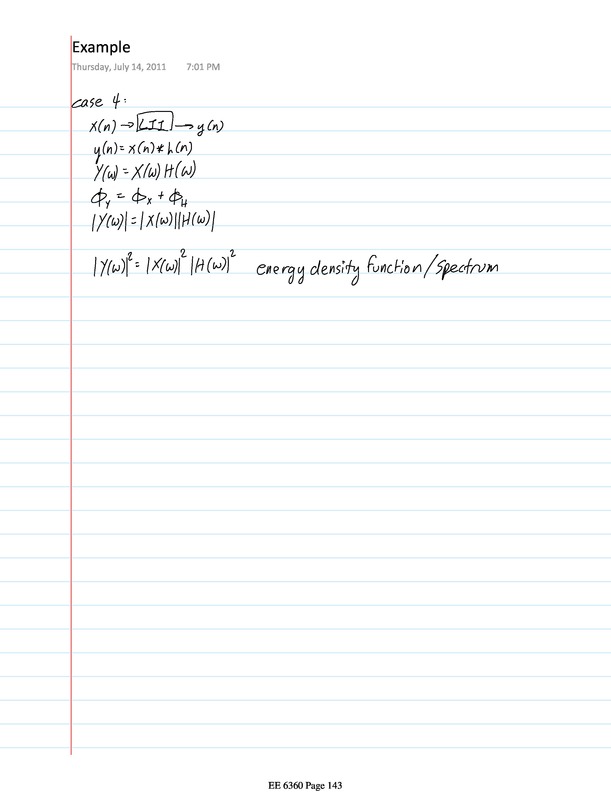 Example
Thursday, July 14, 2011 7:01 PM
case 4:
x(n) → LTI → y(n)
y(n) = x(n) * h(n)
Y(ω) = X(ω) H(ω)
ϕ_Y = ϕ_X + ϕ_H
|Y(ω)| = |X(ω)||H(ω)|
|Y(ω)|² = |X(ω)|² |H(ω)|² energy density function/spectrum
EE 6360 Page 143